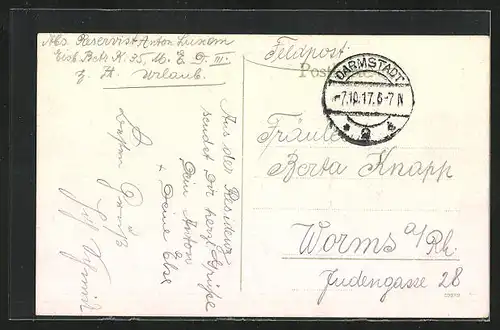 Abs. Reservist Anton Luxem
Eisb. Betr. K. 35, M. E. D. III.
z. Zt. Urlaub.
Feldpost.
Postkarte
DARMSTADT
-7.10.17.6-7 N
* 2 *
Fräulein
Berta Knapp
Worms a/Rh.
Judengasse 28
Aus der Residenz
sendet Dir herzl. Grüße
Dein Anton
+ Deine Else
Besten Gruß